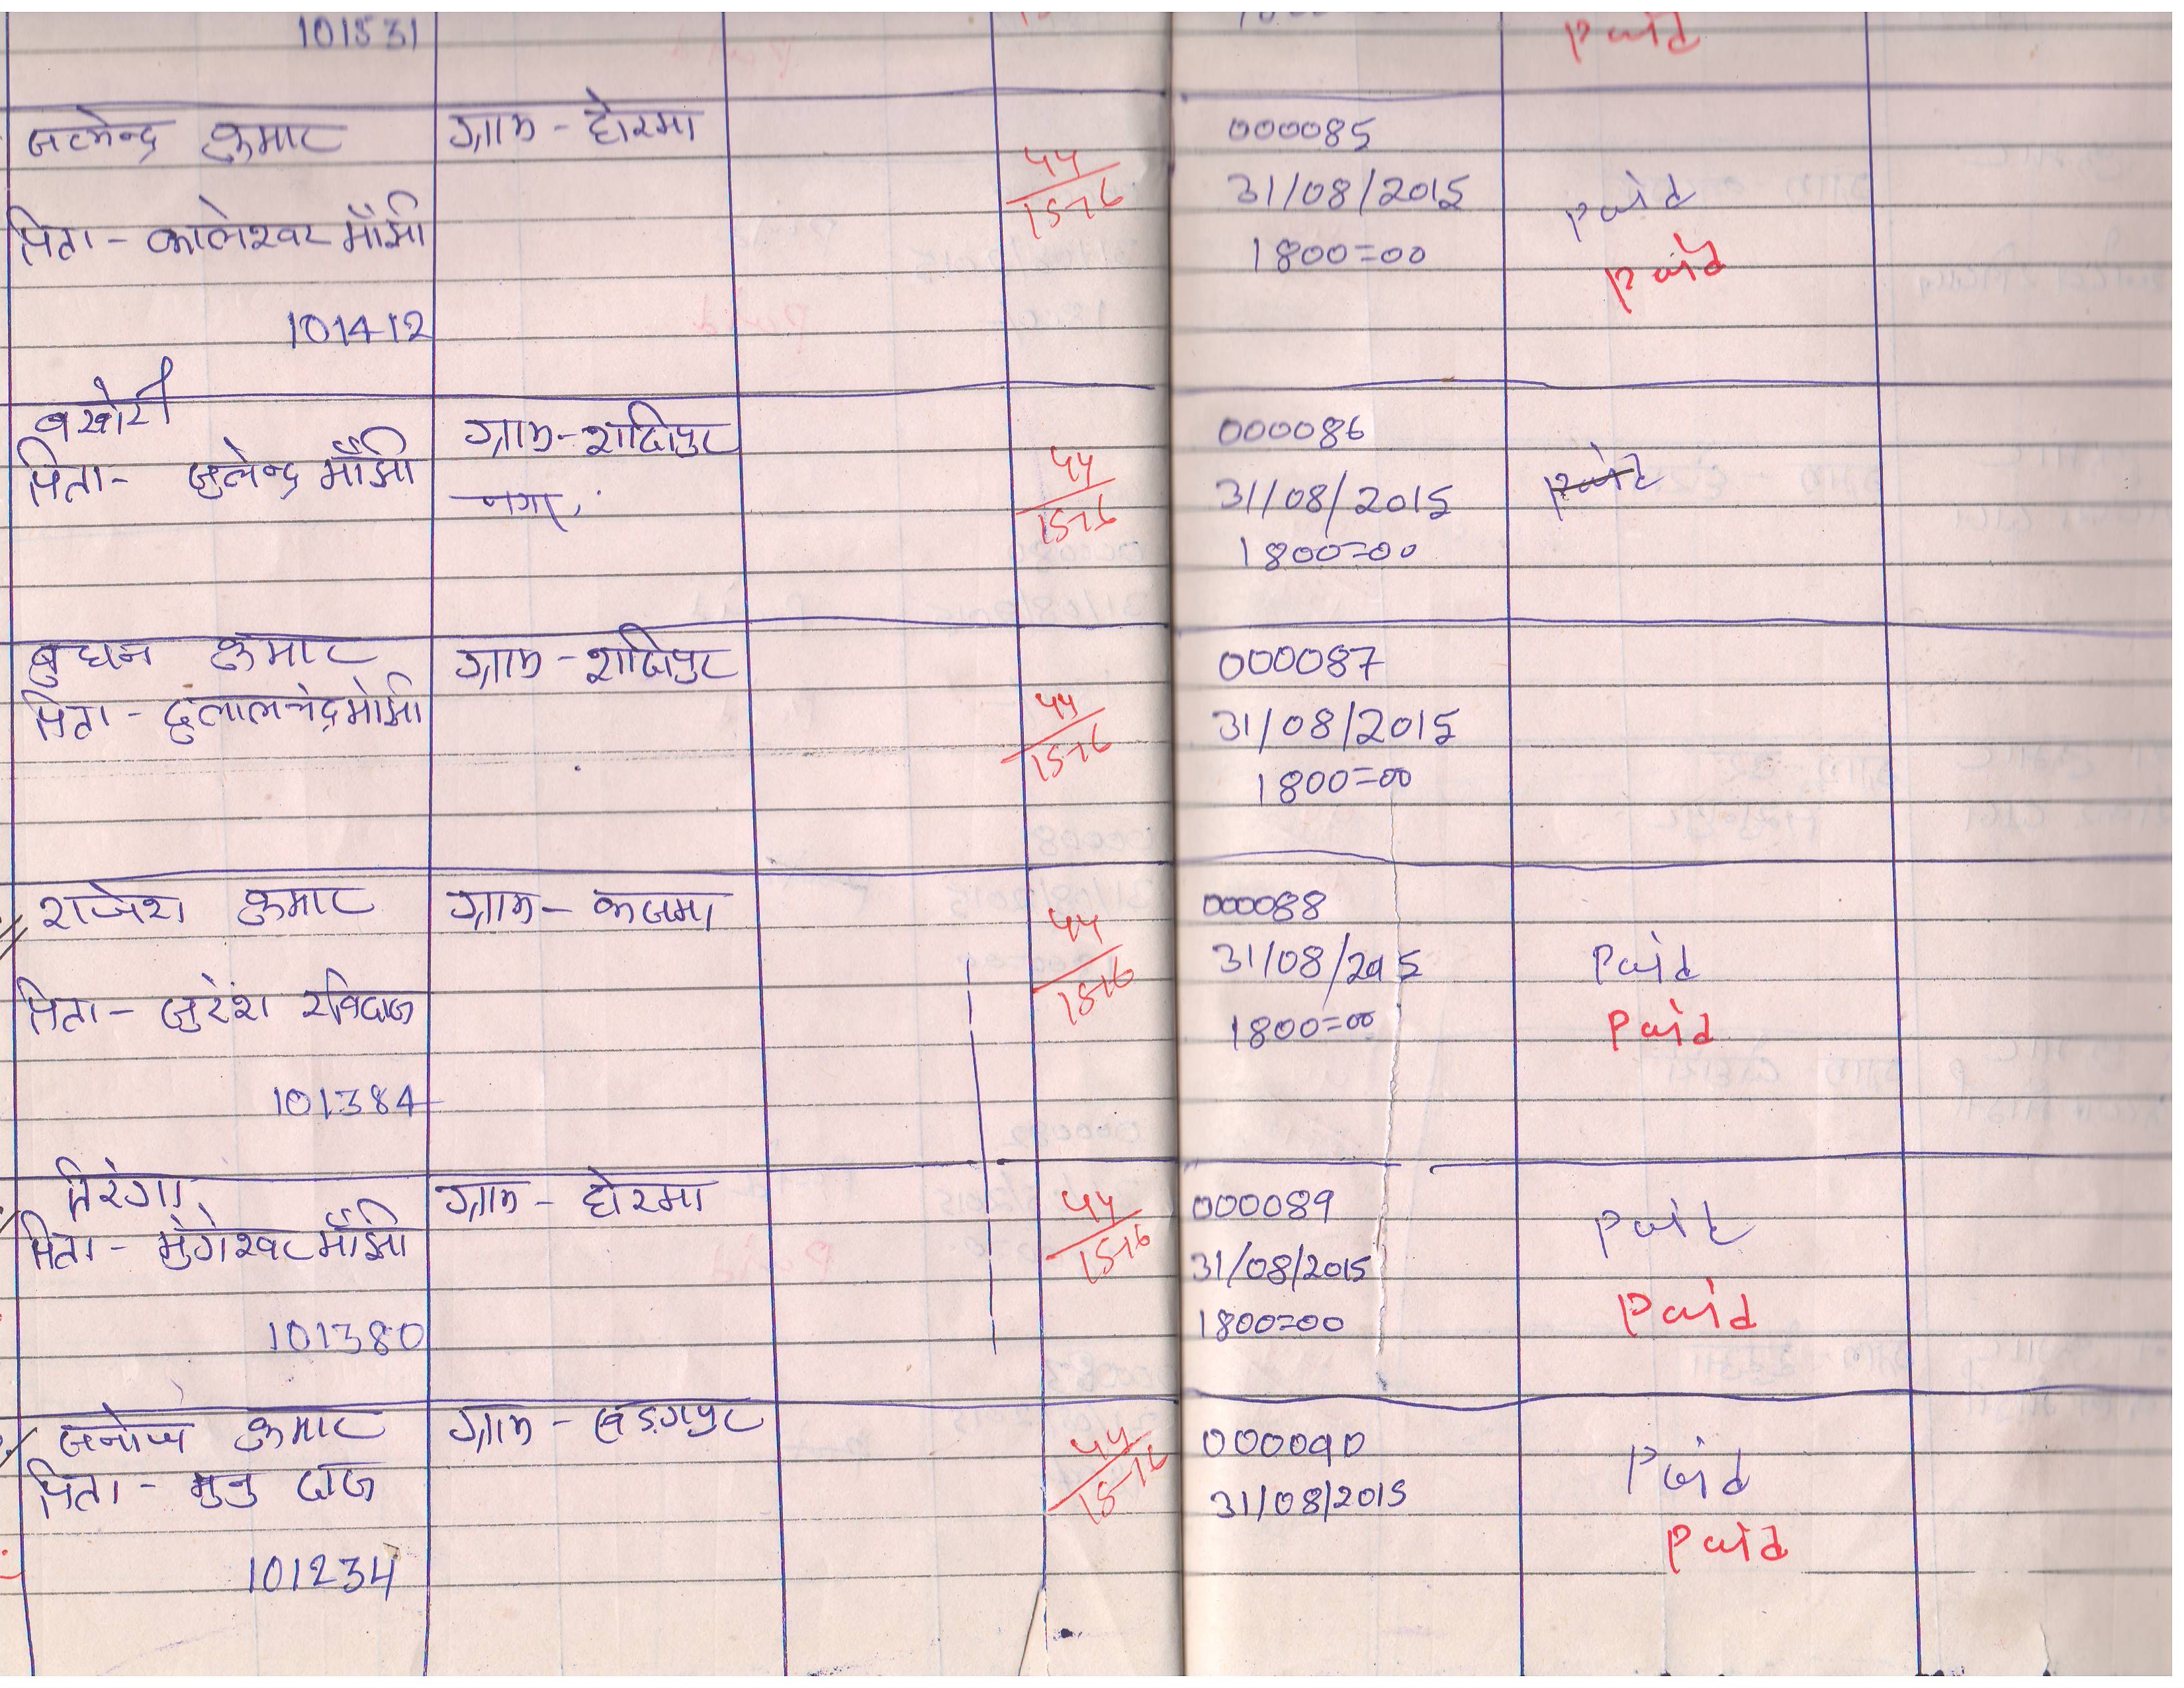 101531
paid
सत्येन्द्र कुमार
ग्राम - होरमा
पिता - कालेश्वर माँझी
101412
44
15-16
000085
31/08/2015
1800=00
paid
paid
बखोरी
पिता - सुलेन्द्र माँझी
ग्राम - शादिपुर
नगर
44
15-16
000086
31/08/2015
1800=00
paid
बुधन कुमार
पिता - दुलालचंद्र माँझी
ग्राम - शादिपुर
44
15-16
000087
31/08/2015
1800=00
राजेश कुमार
पिता - सुरेश रविदास
101384
ग्राम - कजमा
44
15-16
000088
31/08/2015
1800=00
Paid
Paid
तिरंगा
पिता - मुंगेश्वर माँझी
101380
ग्राम - होरमा
44
15-16
000089
31/08/2015
1800=00
paid
Paid
सनोज कुमार
पिता - मुनु दास
101234
ग्राम - खड़गपुर
44
15-16
000090
31/08/2015
Paid
Paid